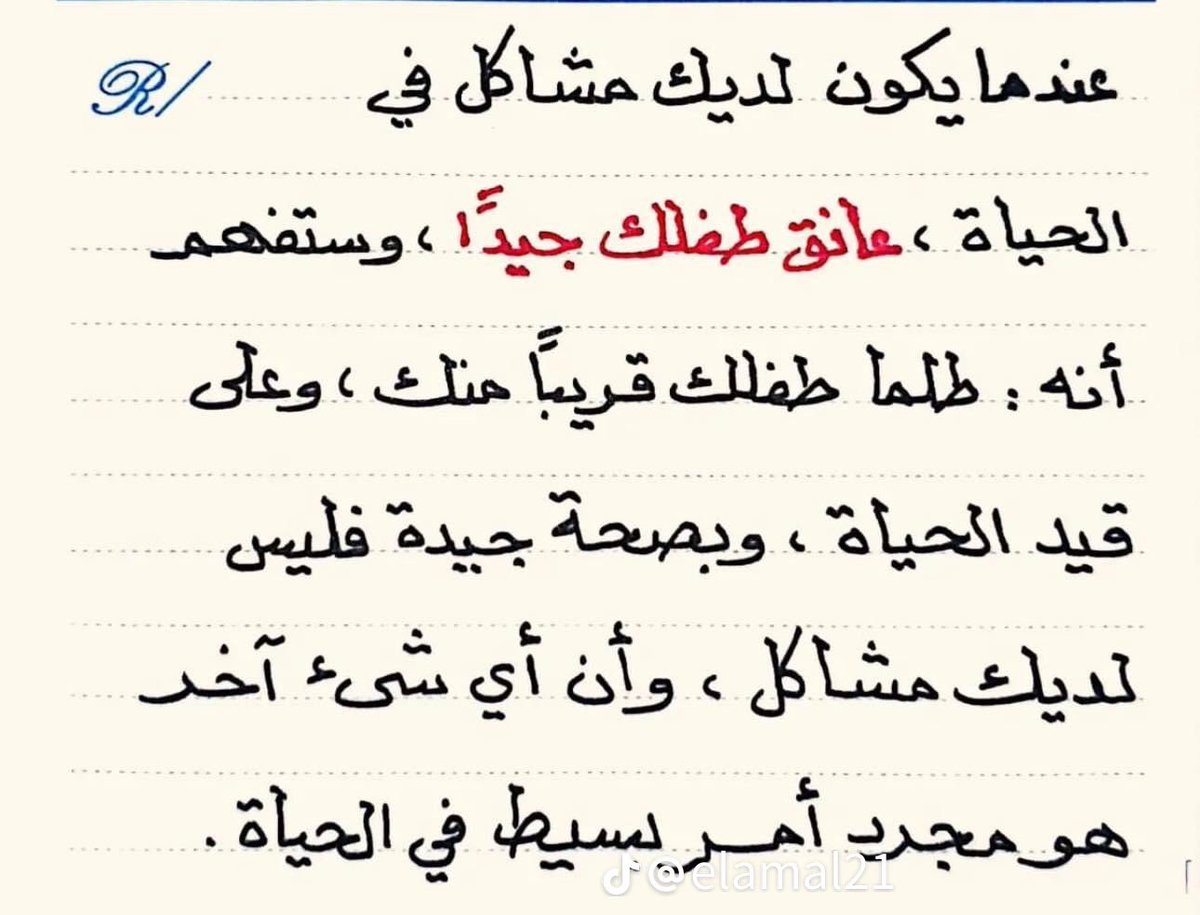 عندما يكون لديك مشاكل في
R/
الحياة ، عانق طفلك جيداً ، وستفهم
أنه : طلما طفلك قريباً منك ، وعلى
قيد الحياة ، وبصحة جيدة فليس
لديك مشاكل ، وأن أي شىء آخر
هو مجرد أمر بسيط في الحياة .
@elamal21